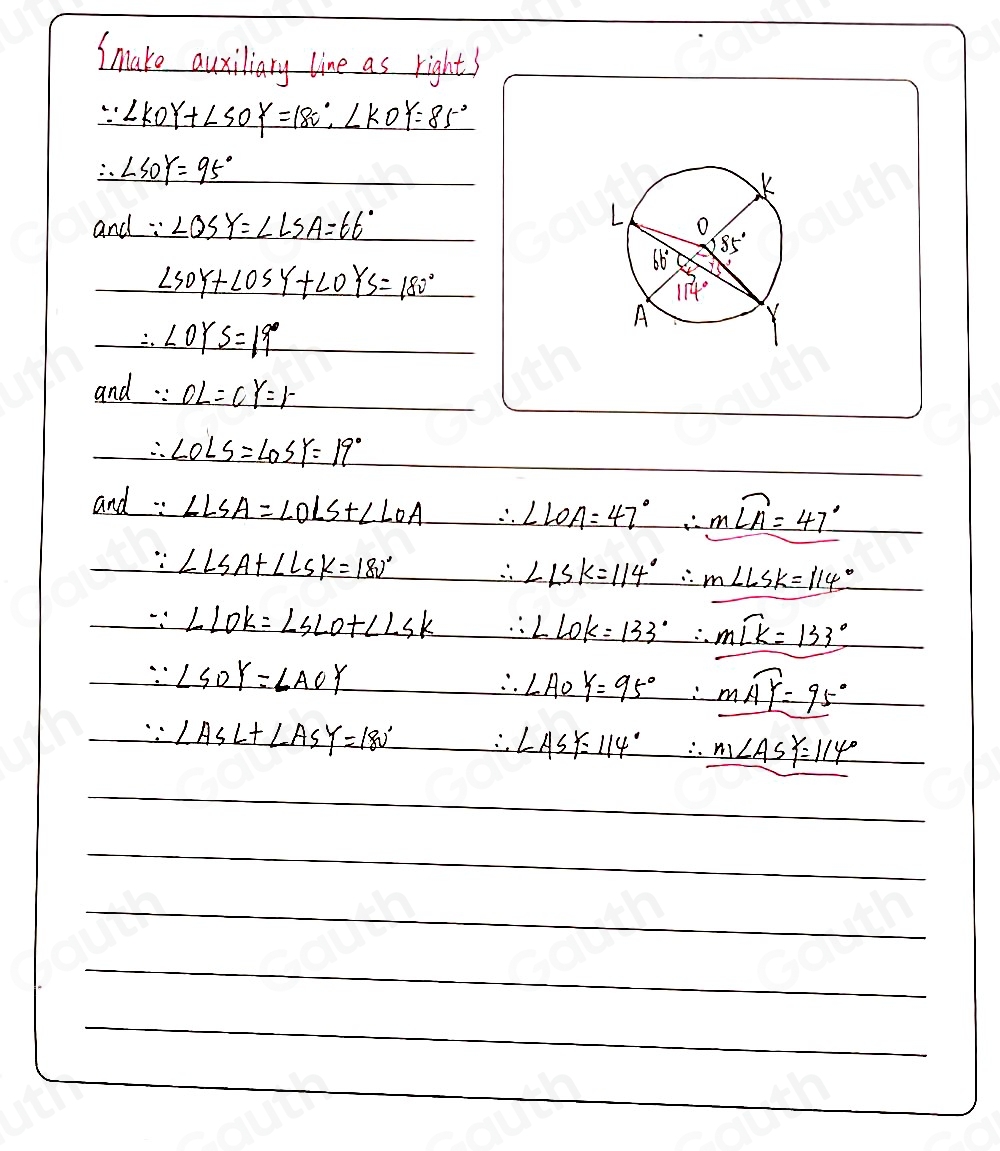 {Make auxiliary line as right}
∵∠KOY+∠SOY=180°, ∠KOY=85°
∴∠SOY=95°
and ∵∠OSY=∠LSA=66°
∠SOY+∠OSY+∠OYS=180°
∴∠OYS=19°
and ∵OL=OY=r
∴∠OLS=∠OSY=19°
and ∵∠LSA=∠OLS+∠LOA ∴∠LOA=47° ∴m⌒LA=47°
∵∠LSA+∠LSK=180° ∴∠LSK=114° ∴m∠LSK=114°
∵∠LOK=∠SLO+∠LSK ∴∠LOK=133° ∴m⌒LK=133°
∵∠SOY=∠AOY ∴∠AOY=95° ∴m⌒AY=95°
∵∠ASL+∠ASY=180° ∴∠ASY=114° ∴m∠ASY=114°
K
L
O
85°
66°
95°
S
114°
A
Y
Gauth